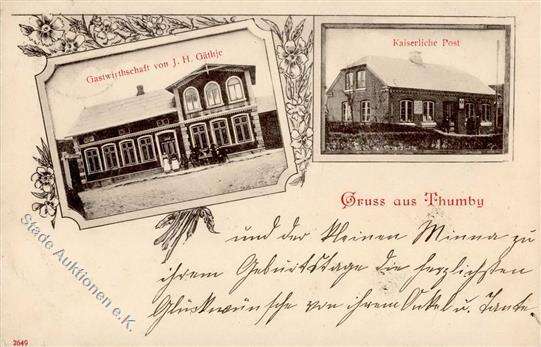 Gastwirthschaft von J. H. Gäthje
Kaiserliche Post
Gruss aus Thumby
und der kleinen Minna zu
ihrem Geburtstage die herzlichsten
Glückwünsche von ihrem Onkel u. Tante.
Stade Auktionen e.K.
2649